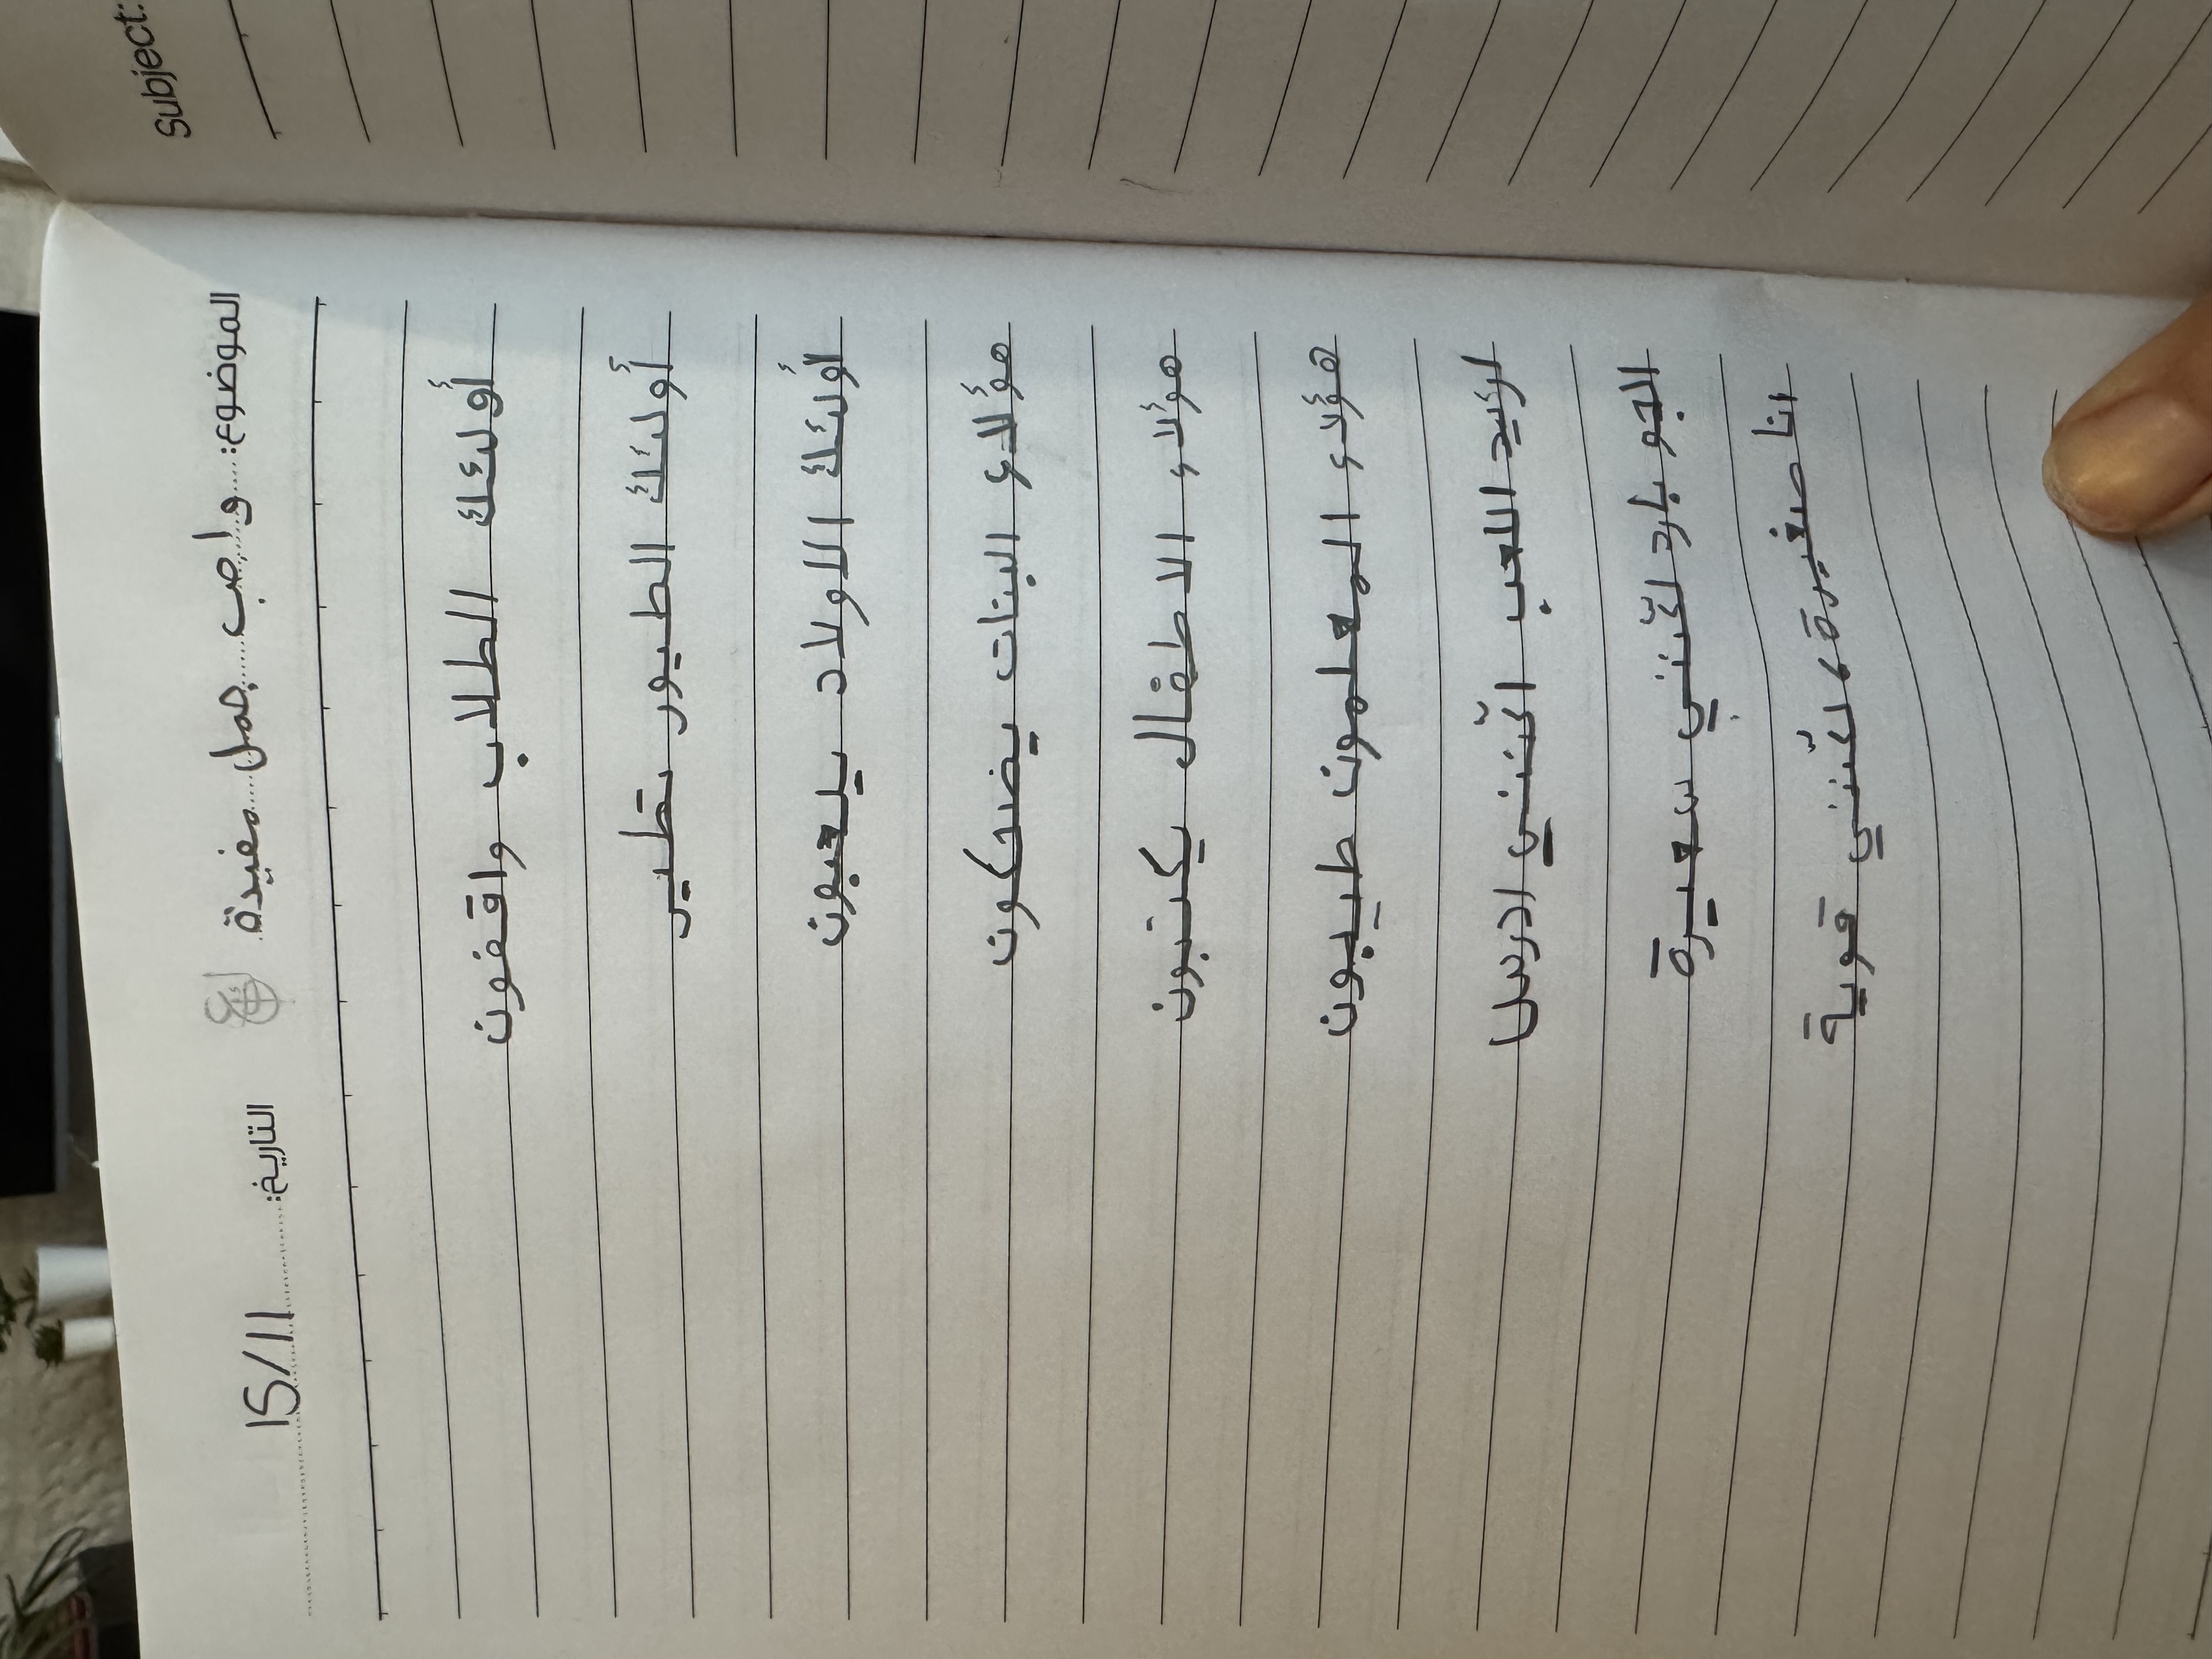 Subject:
الموضوع: واجب جمل مفيدة.
التاريخ: 15/11
أولئك الطلاب واقفون
أولئك الطيور تطير
أولئك الاولاد يلعبون
هؤلاء البنات يضحكون
هؤلاء الاطفال يكتبون
هؤلاء المعلمون طيبون
اريد اللعب لكنّني ادرس
الجو بارد لكنّني سعيدة
انا صغيرة، لكنّني قوية